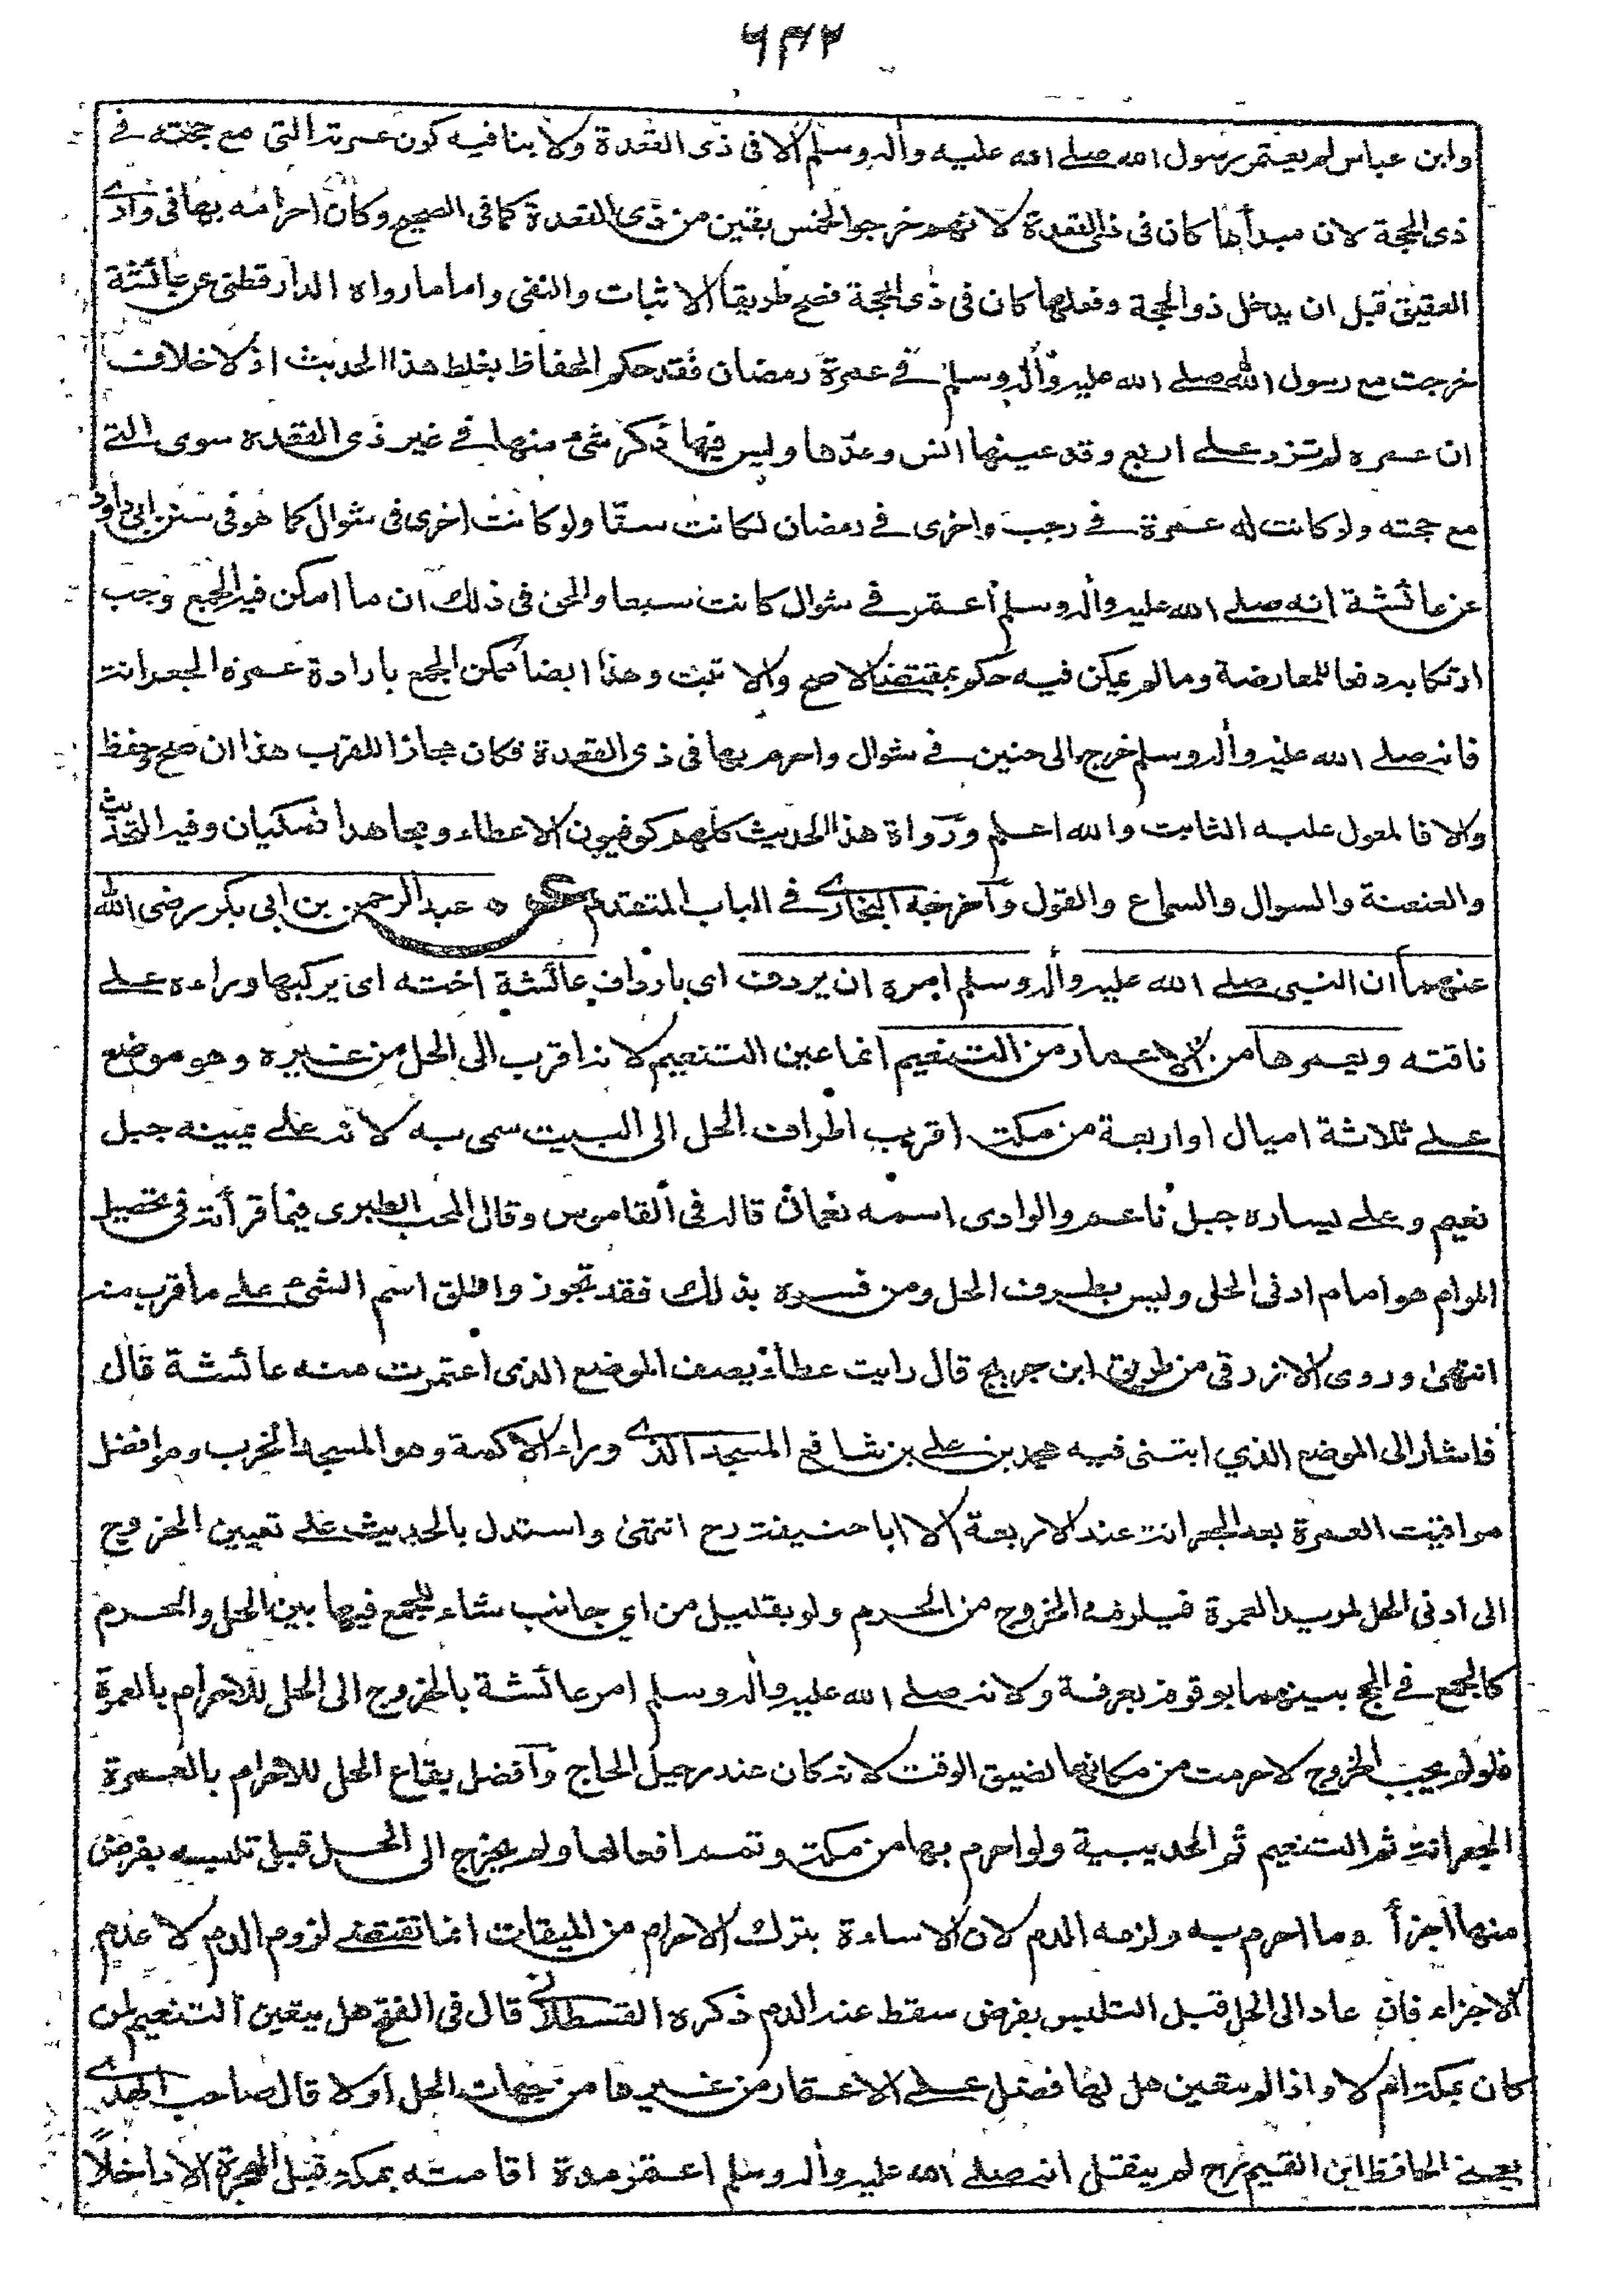 ٦٣٢
وابن عباس لم يعتمر رسول الله صلى الله عليه وآله وسلم الا فى ذى القعدة ولا ينافيه كون عمرته التى مع حجته فى
ذى الحجة لان مبدأها كان فى ذى القعدة لانهم خرجوا لخمس بقين من ذى القعدة كما فى الصحيح وكان احرامه بها فى وادى
العقيق قبل ان يدخل ذو الحجة وفعلها كان فى ذى الحجة فصح طريقا الاثبات والنفى واما ما رواه الدارقطنى عن عائشة
خرجت مع رسول الله صلى الله عليه وآله وسلم فى عمرة رمضان فقد حكم الحفاظ بغلط هذا الحديث اذ لا خلاف
ان عمره لم تزد على اربع وقد عينها انس وعدّها وليس فيها ذكر شئ منها فى غير ذى القعدة سوى التى
مع حجته ولو كانت له عمرة فى رجب واخرى فى رمضان لكانت ستّا ولو كانت اخرى فى شوال كما هو فى سنن ابى داود
عن عائشة انه صلى الله عليه وآله وسلم اعتمر فى شوال كانت سبعا والحق فى ذلك ان ما امكن فيه الجمع وجب
ارتكابه دفعا للمعارضة وما لم يمكن فيه حكم بمقتضى الاصح والاثبت وهذا ايضا ممكن الجمع بارادة عمرة الجعرانة
فانه صلى الله عليه وآله وسلم خرج الى حنين فى شوال واحرم بها فى ذى القعدة فكان مجازا للقرب هذا ان صح وحفظ
والا فالمعول عليه الثابت والله اعلم ورواة هذا الحديث كلهم كوفيون الا عطاء ومجاهدا فمكيان وفيه التحديث
والعنعنة والسوال والسماع والقول وآخرجه البخارى فى الباب المتقدم عن عبد الرحمن بن ابى بكر رضى الله
عنهما ان النبى صلى الله عليه وآله وسلم امره ان يردف اى بارداف عائشة اخته اى يركبها وراءه على
ناقته ويعمرها من الاعمار من التنعيم انما عين التنعيم لانه اقرب الى الحل من غيره وهو موضع
على ثلاثة اميال او اربعة من مكة اقرب اطراف الحل الى البيت سمى به لانه على يمينه جبل
نعيم وعلى يساره جبل ناعم والوادى اسمه نعمان قاله فى القاموس وقال المحب الطبرى فيما قرأته فى تحصيل
المرام هو امام ادنى الحل وليس بطرف الحل ومن فسره بذلك فقد تجوز واطلق اسم الشئ على ما قرب منه
انتهىٰ وروى الازرقى من طريق ابن جريج قال رايت عطاء يصف الموضع الذى اعتمرت منه عائشة قال
فاشار الى الموضع الذي ابتنى فيه محمد بن على بن شافع المسجد الذى وراء الاكمة وهو المسجد الخرب وهو افضل
مواقيت العمرة بعد الجعرانة عند الاربعة الا ابا حنيفة رح انتهىٰ واستدل بالحديث على تعيين الخروج
الى ادنى الحل لمريد العمرة فيلزمه الخروج من الحرم ولو بقليل من اي جانب شاء للجمع فيها بين الحل والحرم
كالجمع فى الحج بينهما بوقوفه بعرفة ولانه صلى الله عليه وآله وسلم امر عائشة بالخروج الى الحل للاحرام بالعمرة
فلو لم يجب الخروج لاحرمت من مكانها لضيق الوقت لانه كان عند رحيل الحاج وآفضل بقاع الحل للاحرام بالعمرة
الجعرانة ثم التنعيم ثم الحديبية ولو احرم بها من مكة وتمم افعالها ولم يخرج الى الحل قبل تلبسه بفرض
منها اجزأ وما احرم به ولزمه الدم لان الاساءة بترك الاحرام من الميقات انما تقتضى لزوم الدم لا عدم
الاجزاء فان عاد الى الحل قبل التلبس بفرض سقط عنه الدم ذكره القسطلانى قال فى الفتح هل يتعين التنعيم لمن
كان بمكة ام لا واذا لم يتعين هل لها فضل على الاعتمار من غيرها من جهات الحل او لا قال صاحب الهدى
يعنى الحافظ ابن القيم رح لم ينقل انه صلى الله عليه وآله وسلم اعتمر مدة اقامته بمكة قبل الهجرة الا داخلًا